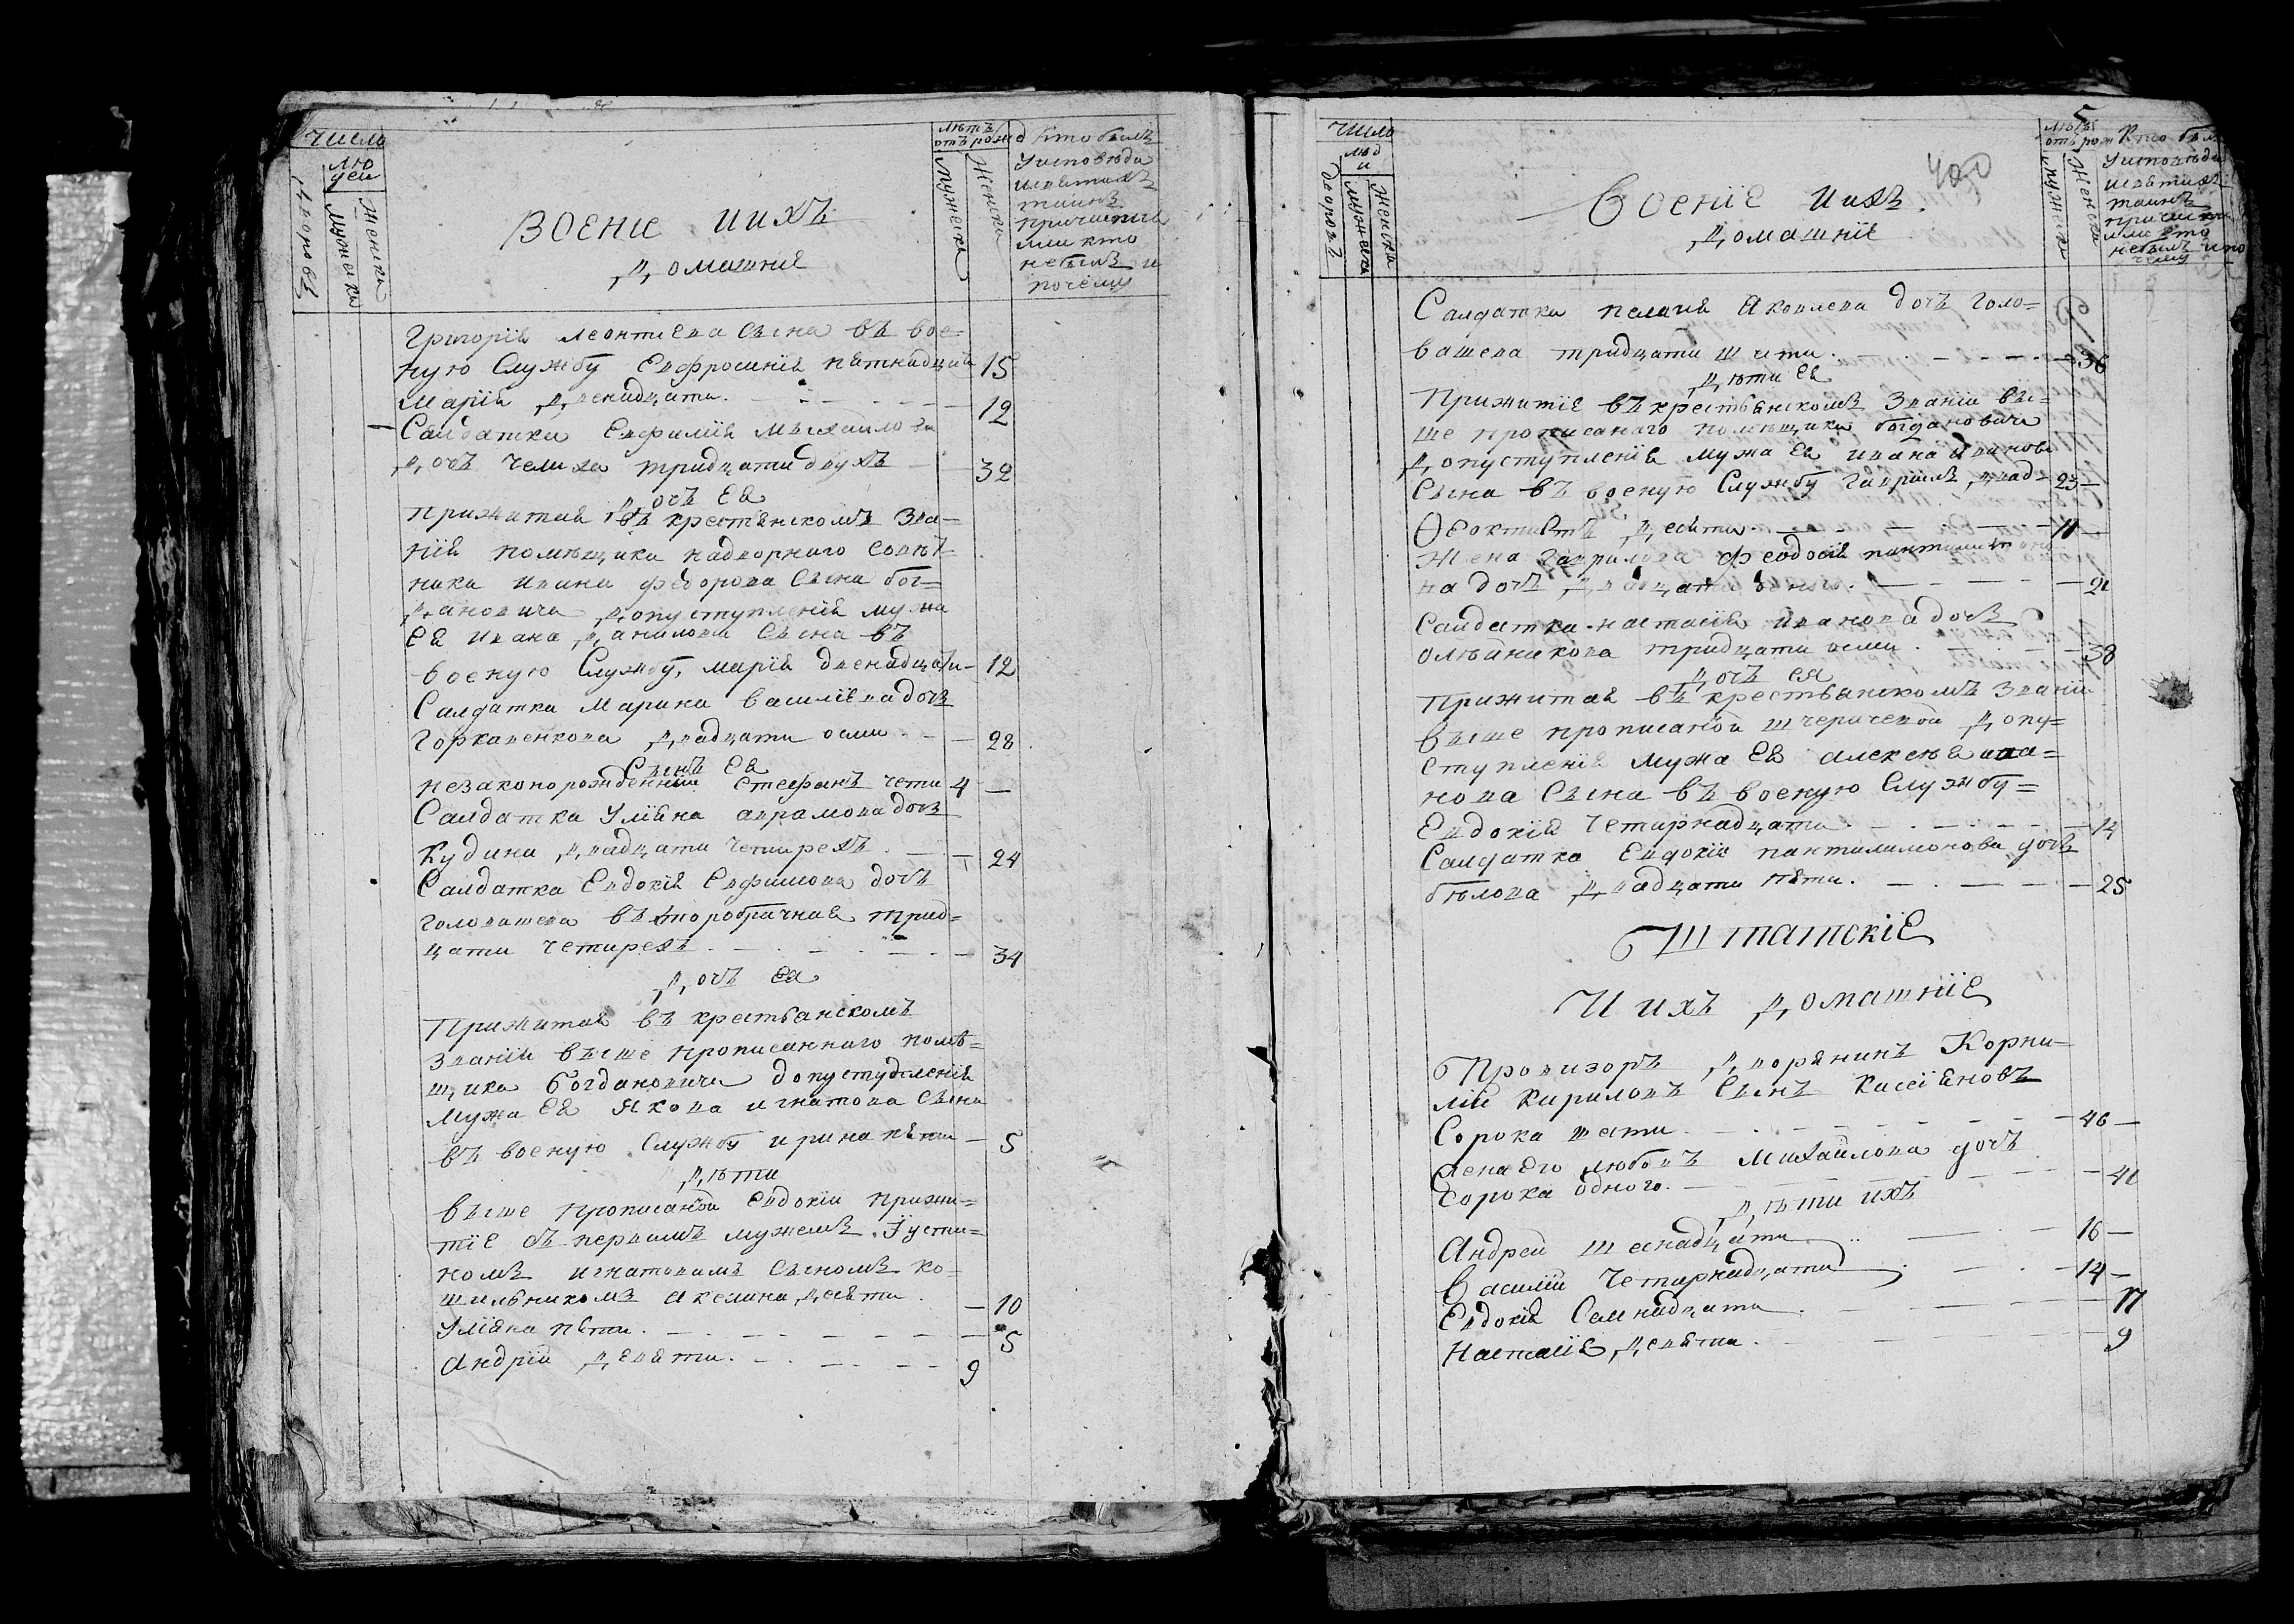 Число
лю
деи
дворовъ
Мужески
Женски
Военне иихъ
Домашние
лѣтъ
отъ рожд
мужеска
Женски
Кто билъ
Уисповѣди
исвятихъ
таинъ
причастия
или кто
небилъ и
почему
Григорія леонтиева Сына въ вое=
ную Службу Евфросинія пятнадцати 15
Марія Двенадцати. 12
Салдатка Евфимія Михаилова
Дочъ Чемиха тридцати двухъ 32
Дочъ Ея
прижитая въ крестянскомъ Зва=
нии помѣщика надворного Совѣт=
ника ивана Федорова Сына бог=
дановича Допуступленія мужа
Ея ивана Данилова Сына въ
военую Службу, марія двенадцати 12
Салдатка Марина василіева дочъ
Горкавенкова Двадцати осми. 28
Сынъ Ея
незаконорожденній Стефанъ чети 4
Салдатка Уліяна аврамова дочъ
Кудина Двадцати четирехъ. 24
Салдатка Евдокія Евфимова дочъ
головашева второбрачная трид=
цати четирехъ 34
Дочъ Ея
Прижитая въ крестьянскомъ
Званіи выше прописанного помѣ=
щика Богдановича допуступленія
Мужа Ея Якова игнатова Сына
въ военую Службу ирина пяти 5
Дѣти
выше прописаной Евдокіи прижи=
тіе съ первимъ мужемъ Густи=
номъ игнатовимъ Сыномъ ко=
шильникомъ Акелина Десяти 10
Уліяна пяти. 5
Андрій Девяти. 9
5
400
Число
люд
и
дворовъ
Мужески
Женски
Военіе иихъ
Домашніе
лѣтъ
отъ рож
мужески
Женски
Кто билъ
Уисповѣди
исвятихъ
таинъ
или кто
небилъ ипо
чему
Салдатка пелагія Яковлева дочъ голо=
вашева тридцати шести. 36
Дѣти Ея
Прижитіе въ крестьянскомъ Званіи вы=
ше прописанаго помѣщика богдановича
Допуступленія мужа Ея ивана иванова
Сына въ военую Службу Гавріилъ Двад= 23
Феоктистъ Десяти. 11
Жена гаврилова Феодосія пантилимоно
на дочъ Двадцати одного. 21
Салдатка настасія иванова дочъ
олѣйникова тридцати осми. 38
Дочъ ея
Прижитая въ крестьянскомъ Званіи
выше прописаной щеричевой Допу=
ступленія мужа Ея алексея ива=
нова Сына въ военую Службу=
Евдокія Четирнадцати 14
Салдатка Евдокія пантилимонова дочъ
бѣлова Двадцати пяти. 25
Штатскіе
И ихъ Домашніе
Провизоръ Дворянинъ Корни=
лій Кириловъ Сынъ Кассіяновъ
Сорока шести. 46
Жена Его любовъ Михаилова дочъ
Сорока одного. 41
Дѣти ихъ
Андрей Шеснадцати 16
Василій Четирнадцати 14
Евдокія Семнадцати. 17
Настасія Девяти. 9